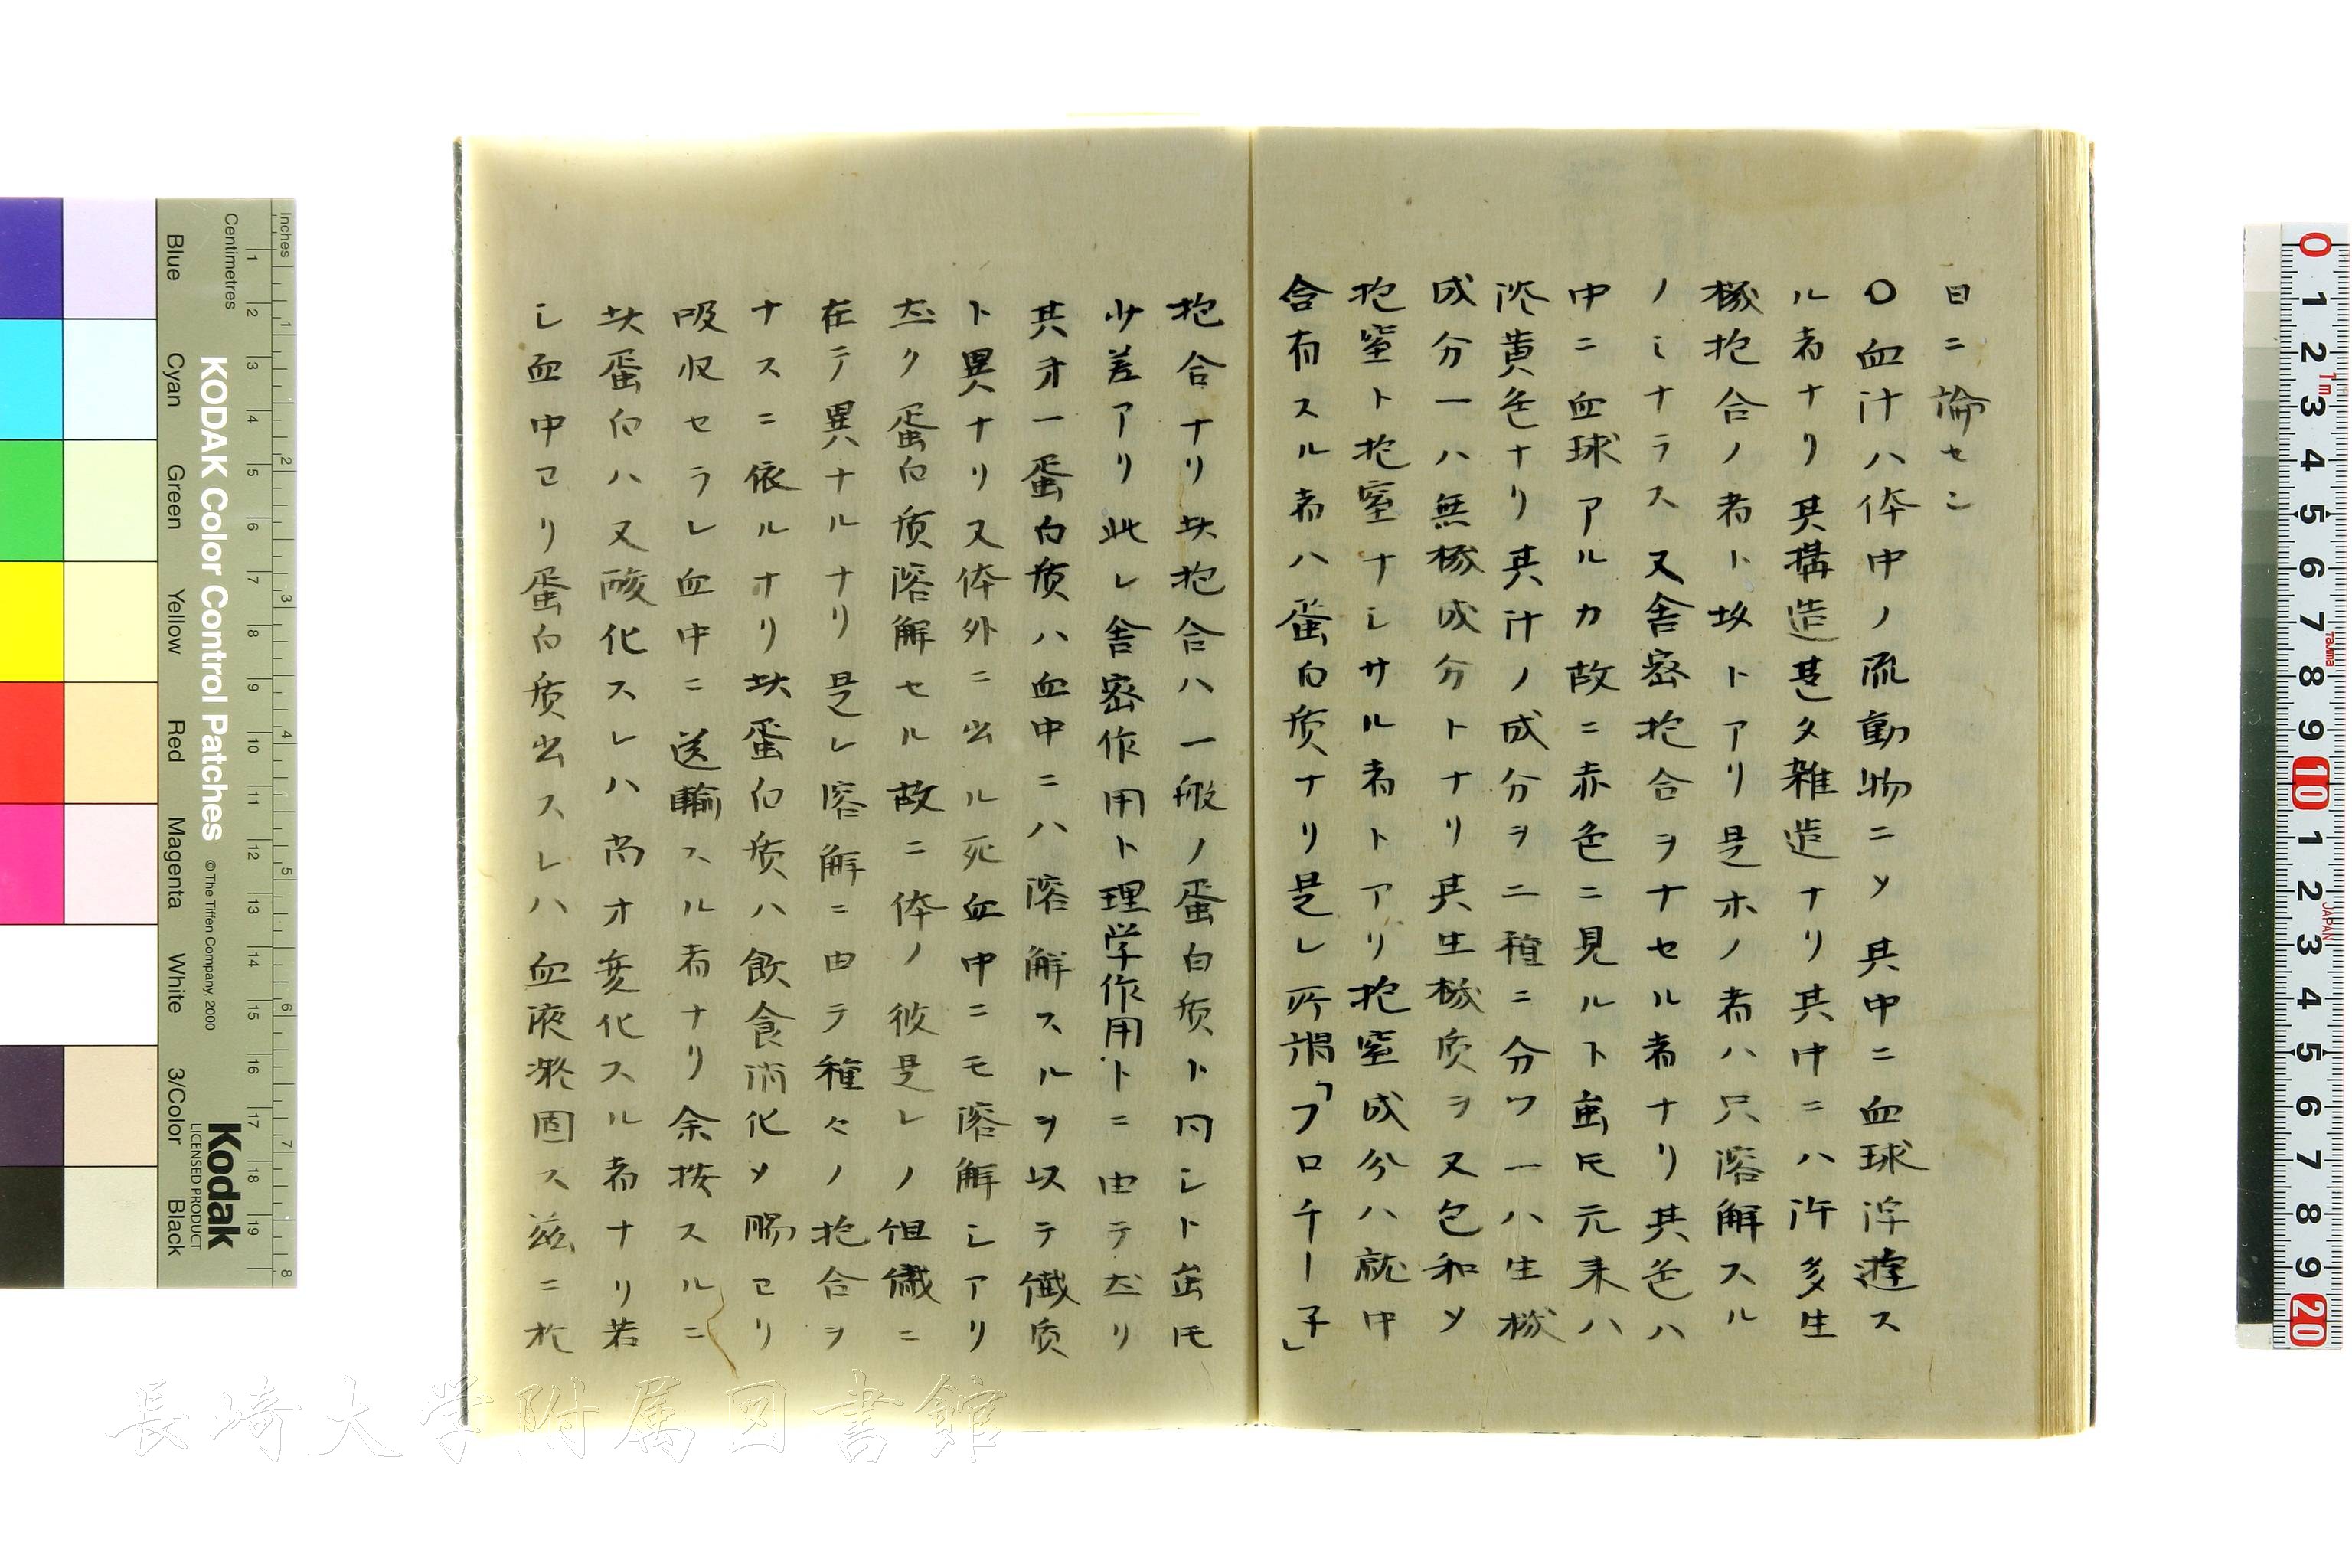 日ニ論セン
〇血汁ハ体中ノ流動物ニソ其中ニ血球浮遊ス
ル者ナリ其構造甚タ雑造ナリ其中ニハ許多生
機抱合ノ者ト故トアリ是ホノ者ハ只溶解スル
ノミナラス又舎密抱合ヲナセル者ナリ其色ハ
中ニ血球アルカ故ニ赤色ニ見ルト虽𪜈元来ハ
淡黄色ナリ其汁ノ成分ヲ二種ニ分ツ一ハ生機
成分一ハ無機成分トナリ其生機质ヲ又包和ソ
抱窒ト抱窒ナシサル者トアリ抱窒成分ハ就中
含有スル者ハ蛋白质ナリ是レ所謂「フロチー子」
抱合ナリ此抱合ハ一般ノ蛋白质ト同シト虽𪜈
少差アリ此レ舎密作用ト理学作用トニ由テ起リ
其オ一蛋白质ハ血中ニハ溶解スルヲ以テ繊质
ト異ナリ又体外ニ出ル死血中ニモ溶解シアリ
如ク蛋白质溶解セル故ニ体ノ彼是レノ組織ニ
在テ異ナルナリ是レ溶解ニ由テ種々ノ抱合ヲ
ナスニ依ルナリ此蛋白质ハ飲食消化ソ腸ヨリ
吸収セラレ血中ニ送輸スル者ナリ余按スルニ
此蛋白ハ又酸化スレハ尚オ変化スル者ナリ若
シ血中ヨリ蛋白质出スレハ血液凝固ス茲ニ於
Inches
Centimetres
KODAK Color Control Patches
© The Tiffen Company, 2000
Kodak
LICENSED PRODUCT
Blue
Cyan
Green
Yellow
Red
Magenta
White
3/Color
Black
長崎大学附属図書館